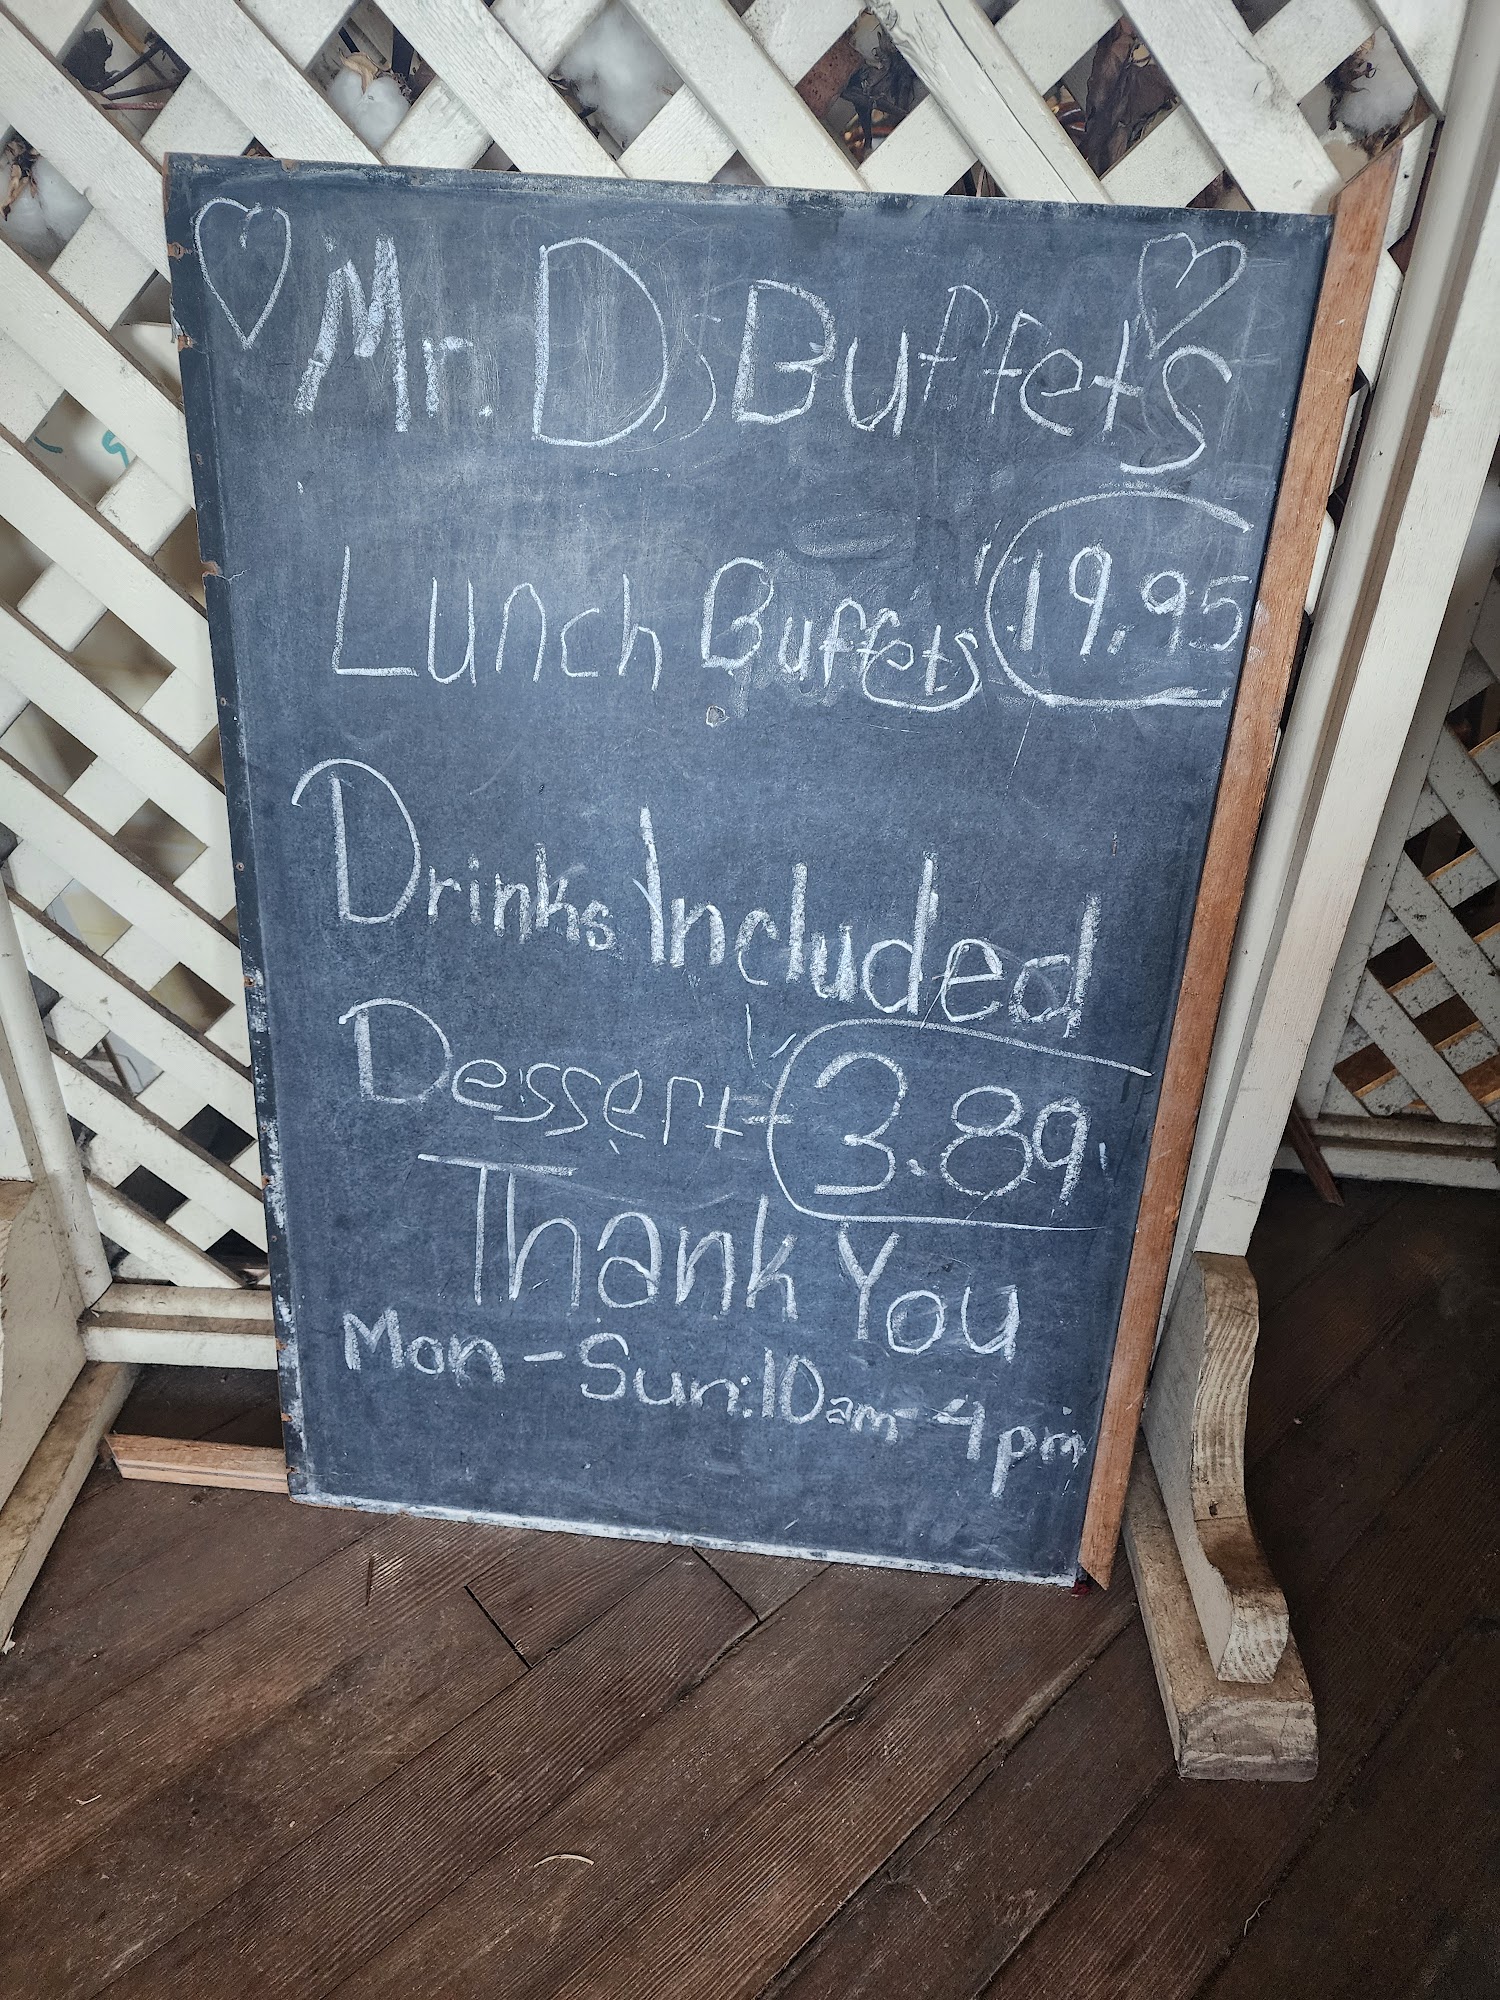 Mr. D,s Buffets
Lunch Buffets 19.95
Drinks Included
Dessert 3.89
Thank You
Mon-Sun:10am-4pm